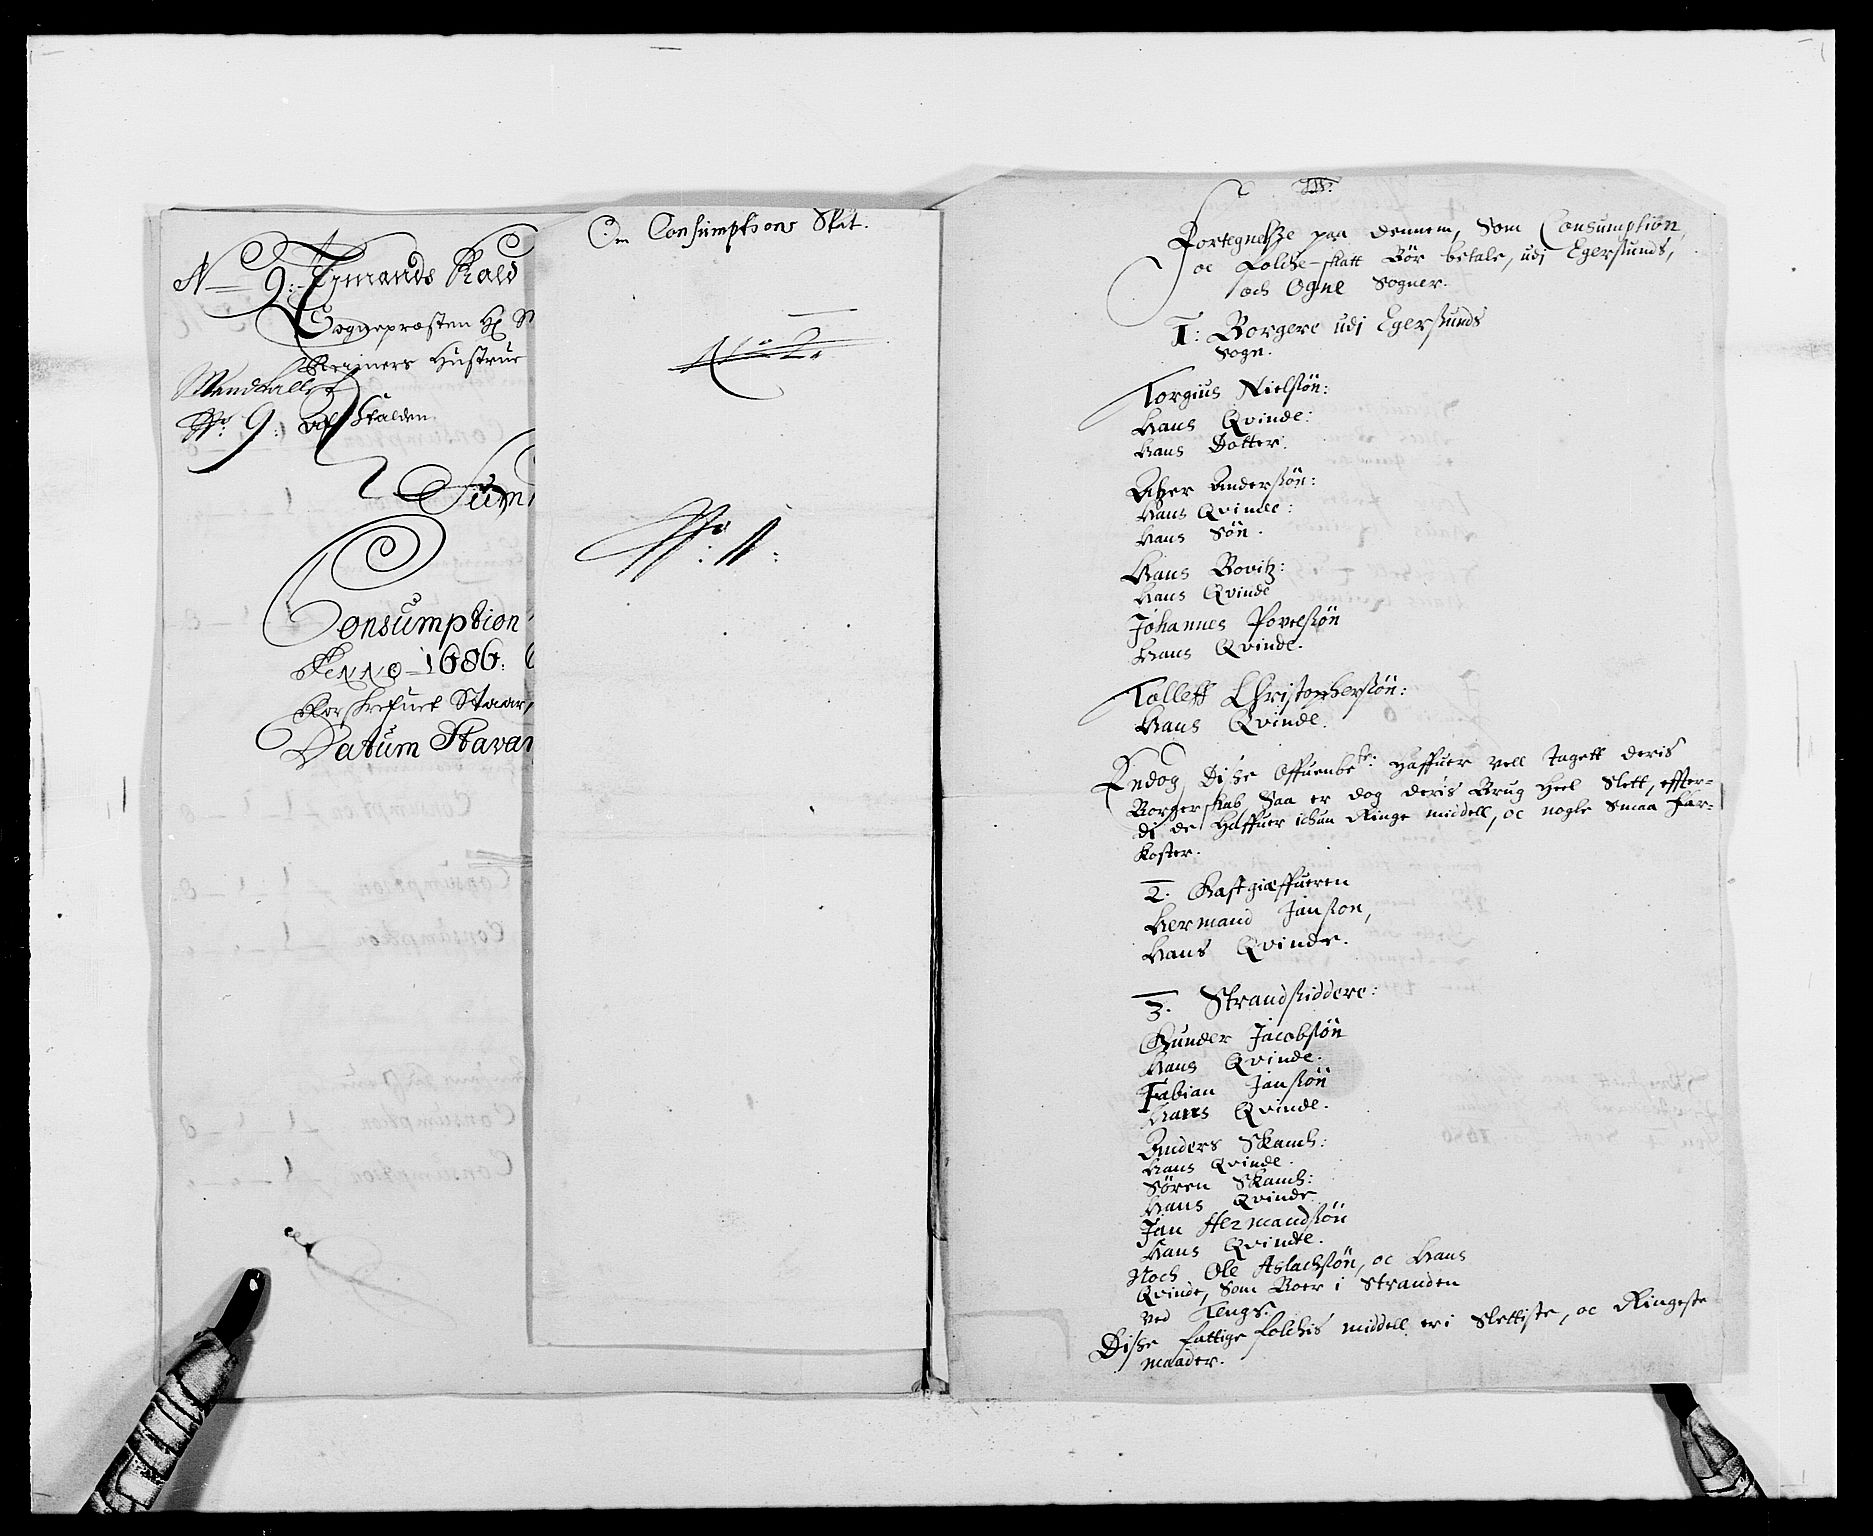 N 9: Ejmands Kald
Sognepræsten H
Reimers Hustrue
Mandtallet
No. 9: Af Skalden
Sum
Consumption
Anno 1686:
Forskrefuet Staar
Datum Stavan
Om Consumptions Skat.
No 2.
No: 11:
Fortegnelsze paa dennem, Som Consumption,
oc Folche-skatt Bør betale, udj Egersunds,
och Ogne Sogner.
1: Borgere udj Egersunds
Sogn.
Torgius Nielsøn:
Hans Qvinde:
Hans Dotter:
Atzer Andersøn:
Hans Qvinde:
Hans Søn.
Hans Bovitz:
Hans Qvinde
Johannes Povelsøn
Hans Qvinde.
Tolleff Christophersøn:
Hans Qvinde.
Endog Disze Offuenbete: Haffuer vell tagett deris
Borgerskab, Saa er dog deris Brug Heel Slett, effter-
di de Haffuer ichun Ringe middell, oc nogle Smaa Far-
koster.
2. Gastgiæffueren
Hermand Janson,
Hans Qvinde.
3. Strandsiddere:
Gunder Jacobsøn
Hans Qvinde.
Fabian Jansøn
Hans Qvinde.
Anders Skamb:
Hans Qvinde.
Søren Skamb:
Hans Qvinde
Jan Hermandsøn
Hans Qvinde.
Noch Ole Aslachsøn, oc Hans
Qvinde, Som Boer i Stranden
ved Tengs.
Disze fattige folchis middell er i Slettiste, oc Ringeste
maader.